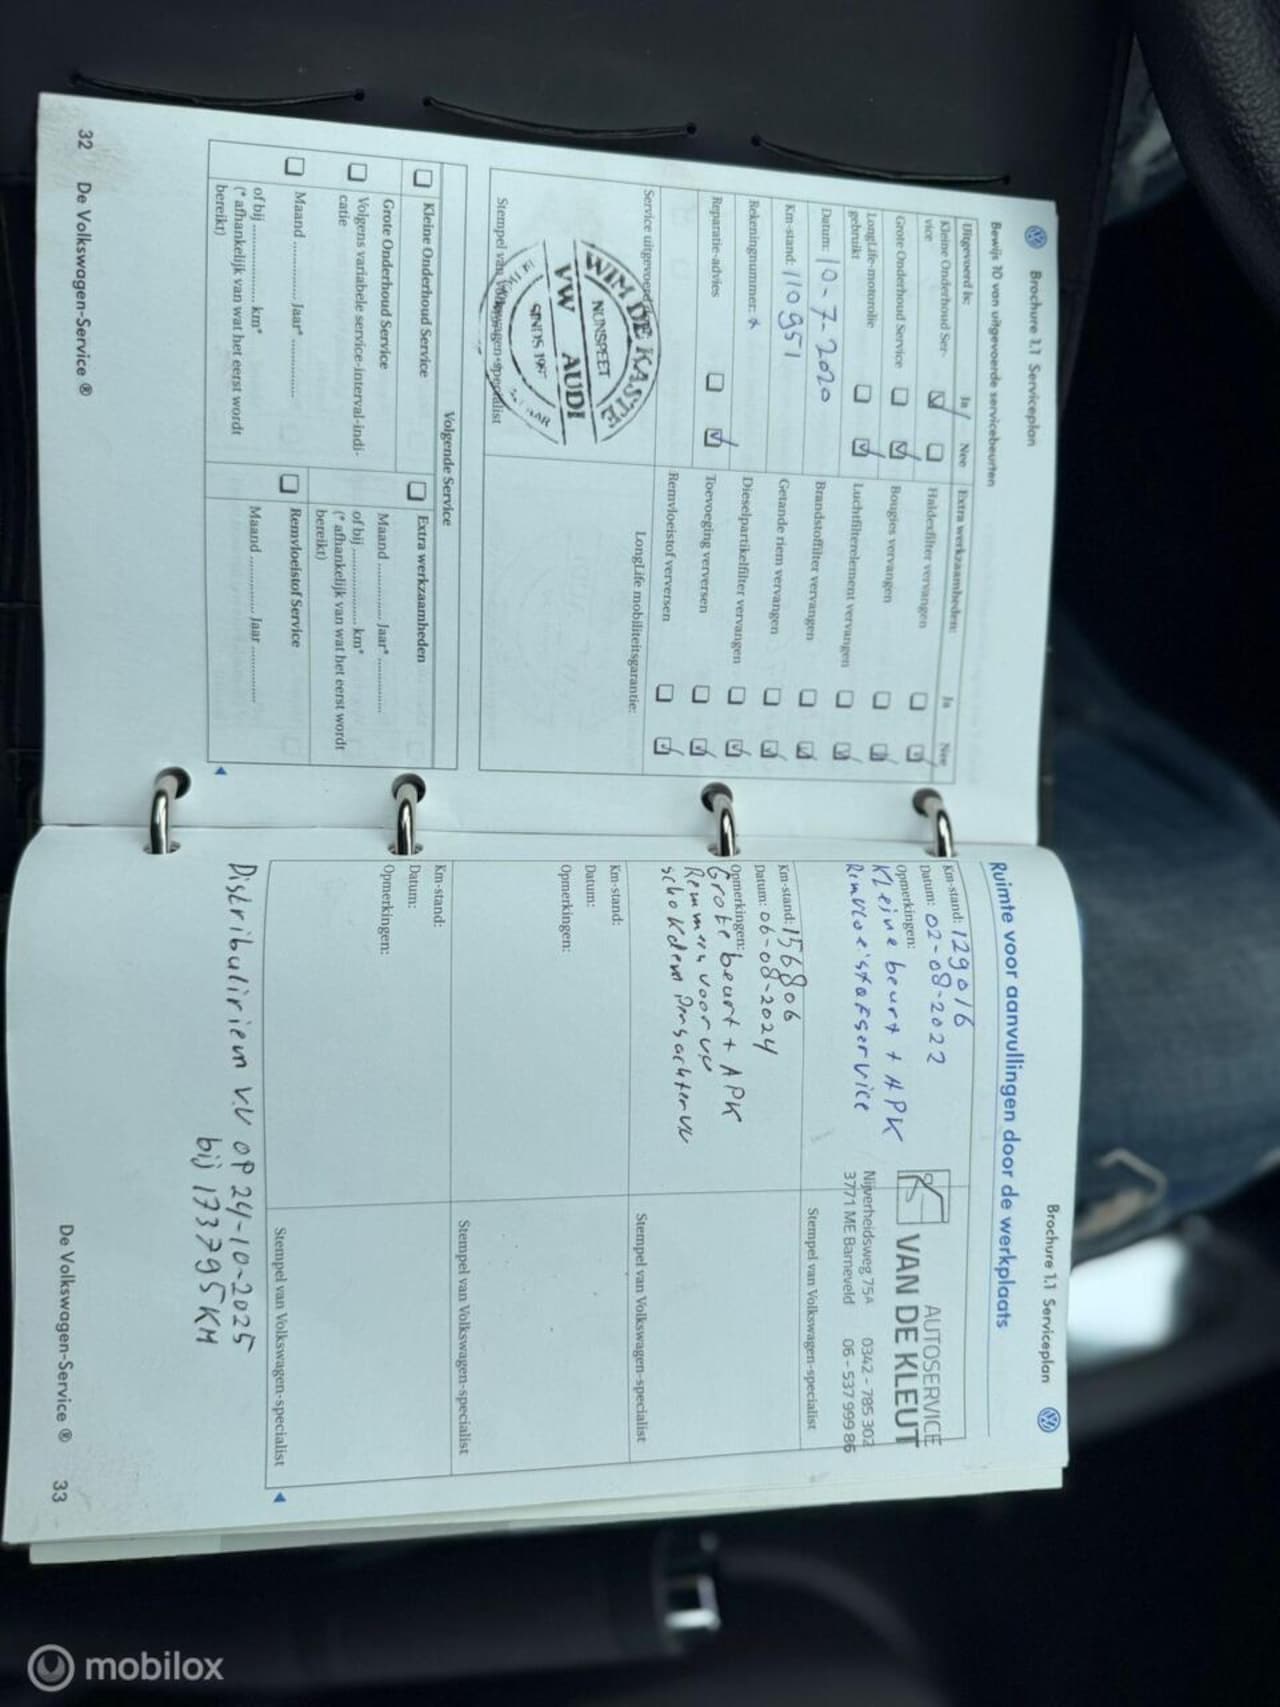 Brochure 1.1 Serviceplan
Bewijs 10 van uitgevoerde servicebeurten
Uitgevoerd is: Ja Nee
Kleine Onderhoud Ser-
vice
Grote Onderhoud Service
LongLife-motorolie
gebruikt
Datum: 10-7-2020
Km-stand: 110951
Rekeningnummer:
Reparatie-advies
Extra werkzaamheden: Ja Nee
Haldexfilter vervangen
Bougies vervangen
Luchtfilterelement vervangen
Brandstoffilter vervangen
Getande riem vervangen
Dieselpartikelfilter vervangen
Toevoeging verversen
Remvloeistof verversen
Service uitgevoerd
WIM DE KASTE
NUNSPEET
VW AUDI
SINDS
Stempel van Volkswagen-specialist
LongLife mobiliteitsgarantie:
Volgende Service
Kleine Onderhoud Service
Grote Onderhoud Service
Volgens variabele service-interval-indi-
catie
Maand ............... Jaar* ...............
of bij .................... km*
(* afhankelijk van wat het eerst wordt
bereikt)
Extra werkzaamheden
Maand ............... Jaar* ...............
of bij .................... km*
(* afhankelijk van wat het eerst wordt
bereikt)
Remvloeistof Service
Maand ............... Jaar ...............
32 De Volkswagen-Service ®
Brochure 1.1 Serviceplan
Ruimte voor aanvullingen door de werkplaats
Km-stand: 129016
Datum: 02-08-2022
Opmerkingen:
Kleine beurt + APK
Remvloeistofservice
AUTOSERVICE
VAN DE KLEUT
Nijverheidsweg 75A 0342 - 785 302
3771 ME Barneveld 06 - 537 999 86
Stempel van Volkswagen-specialist
Km-stand: 156806
Datum: 06-08-2024
Opmerkingen:
Grote beurt + APK
Remmen voor vv
schokdempers achter vv
Stempel van Volkswagen-specialist
Km-stand:
Datum:
Opmerkingen:
Stempel van Volkswagen-specialist
Km-stand:
Datum:
Opmerkingen:
Stempel van Volkswagen-specialist
Distributieriem v.v op 24-10-2025
bij 173795 KM
De Volkswagen-Service ® 33
mobilox